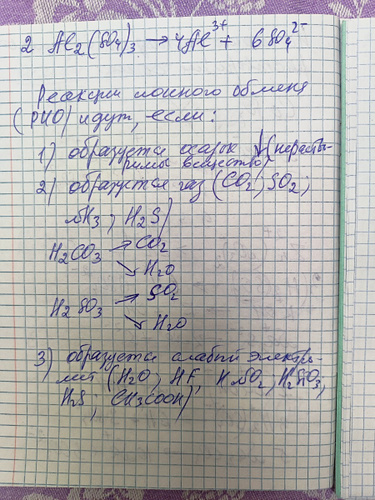 2 Al₂(SO₄)₃ → 4Al³⁺ + 6SO₄²⁻
Реакции ионного обмена
(РИО) идут, если:
1) образуется осадок ↓ (нераство-
римы вещество)
2) образуется газ (CO₂; SO₂;
NH₃; H₂S)
H₂CO₃ → CO₂
↘ H₂O
H₂SO₃ → SO₂
↘ H₂O
3) образуется слабый электро-
лит (H₂O; HF, HNO₂, H₂SiO₃,
H₂S; CH₃COOH)